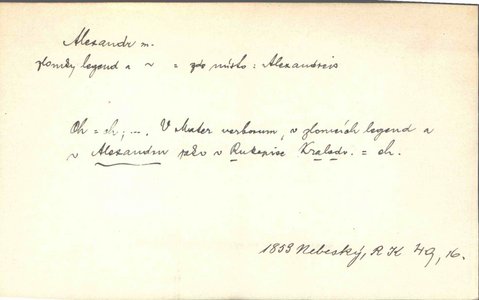 Alexandr m.
zlomky legend a ~ = zde místo: Alexandreis
Ch = ch; ... V Mater verborum, v zlomcích legend a
v Alexandru jako v Rukopise Kralodv. = ch.
1853 Nebeský, R K 49, 16.